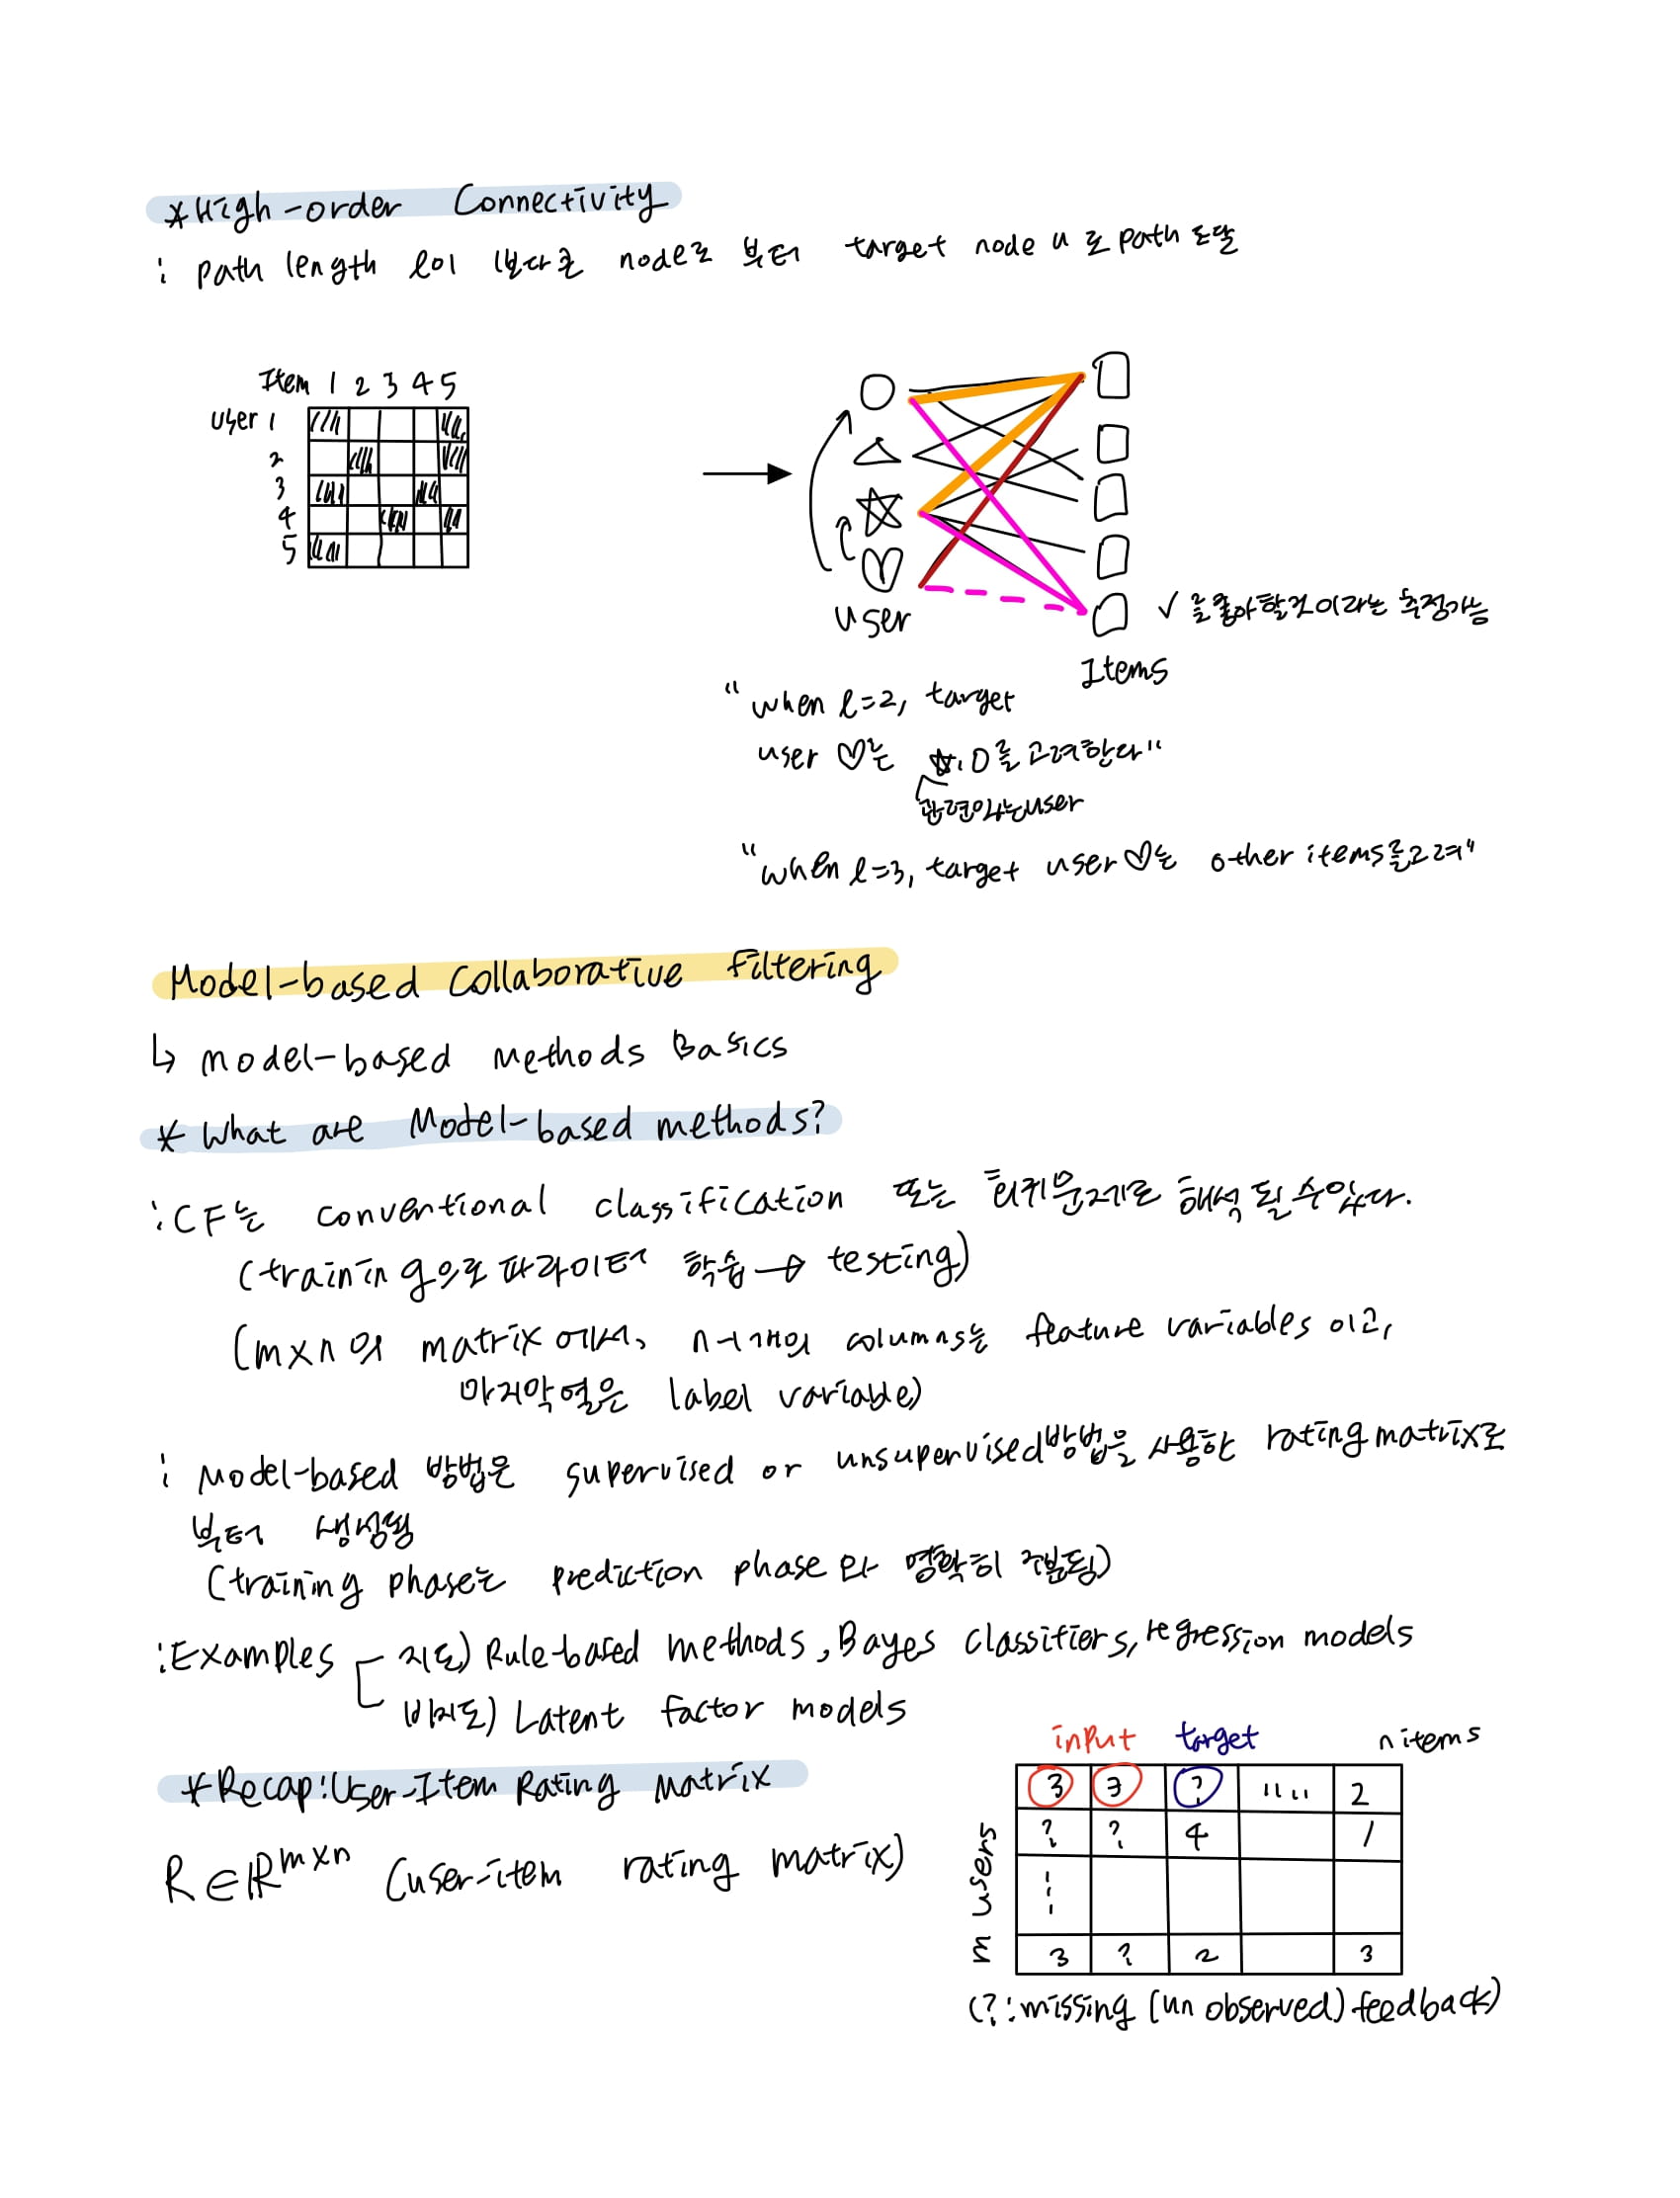 *High-order Connectivity
: path length l이 1보다 큰 node로 부터 target node u로 path 도달
Item 1 2 3 4 5
user 1
2
3
4
5
user
✓를 좋아할 것이라는 추정가능
Items
"when l=2, target
user ♡는 ☆, O를 고려한다"
관련있는 user
"when l=3, target user ♡는 other items를 고려"
Model-based collaborative filtering
↳ model-based methods Basics
* What are Model-based methods?
: CF는 conventional classification 또는 회귀문제로 해석 될 수 있다.
(training으로 파라미터 학습 → testing)
(m×n의 matrix에서, n-1개의 columns는 feature variables 이고,
마지막 열은 label variable)
: Model-based 방법은 supervised or unsupervised방법을 사용한 rating matrix로
부터 생성됨
(training phase는 prediction phase와 명확히 구분됨)
: Examples
지도) Rule-based methods, Bayes classifiers, regression models
비지도) Latent factor models
*Recap: User-Item Rating Matrix
R∈ℝ^{m×n} (user-item rating matrix)
input target n items
3 3 ? .... 2
m users
? ? 4 1
⋮
3 ? 2 3
(? : missing (unobserved) feedback)